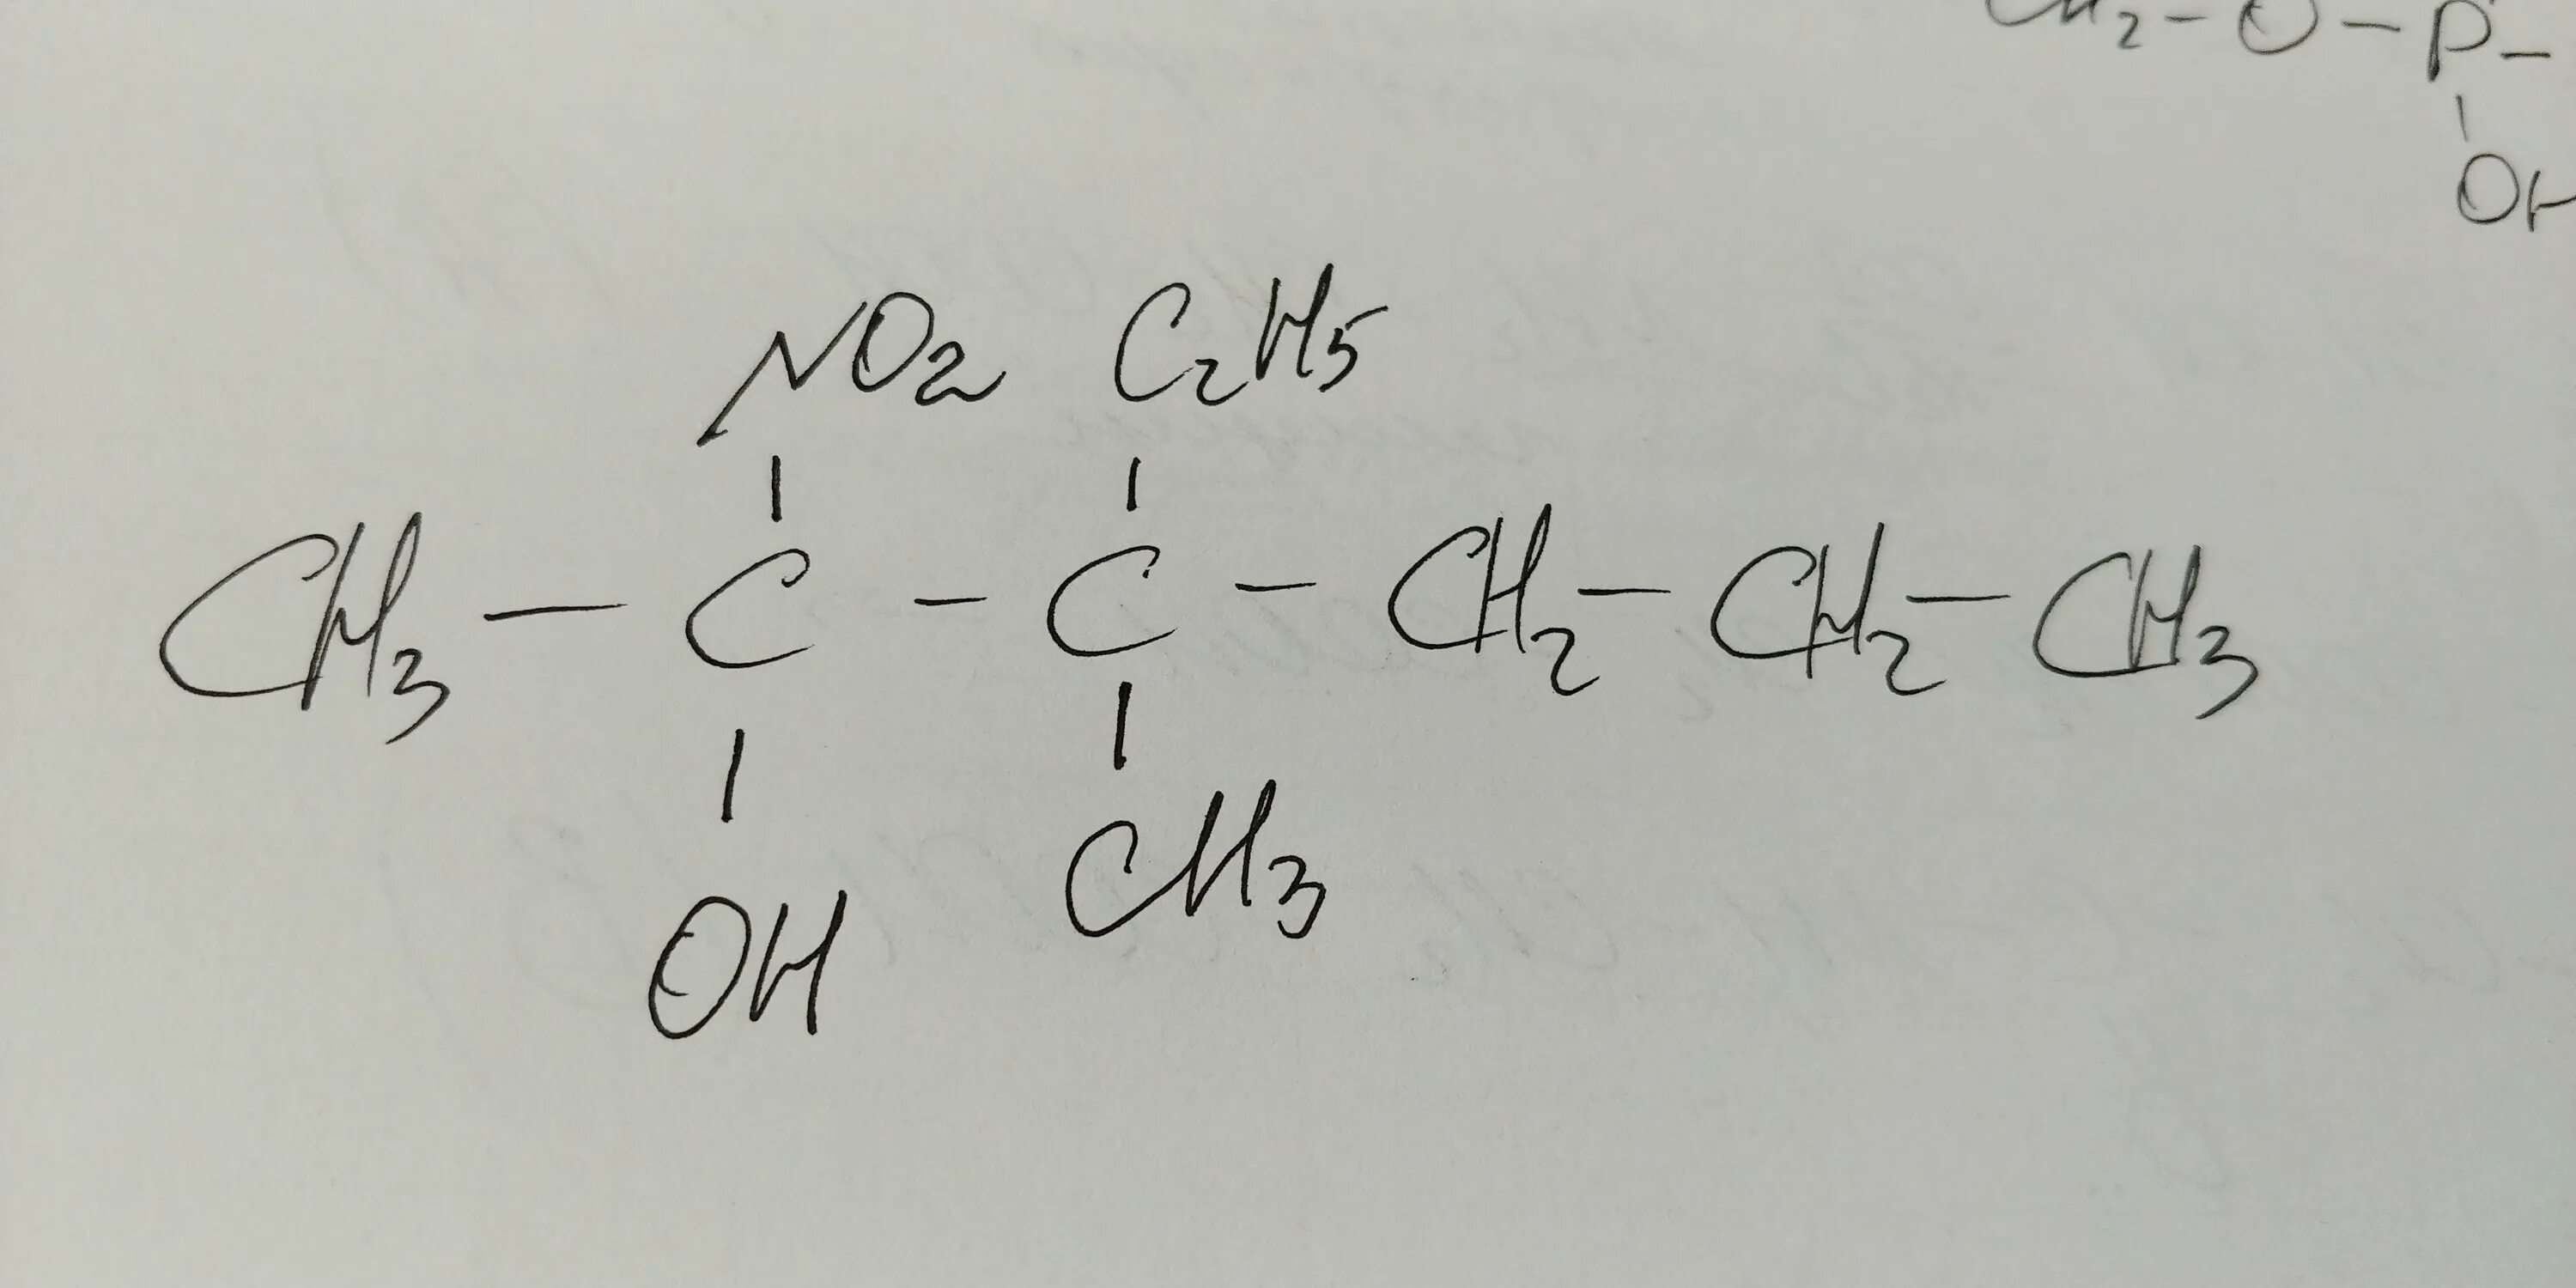 CH2-O-P-
OH
NO2 C2H5
CH3-C-C-CH2-CH2-CH3
OH CH3